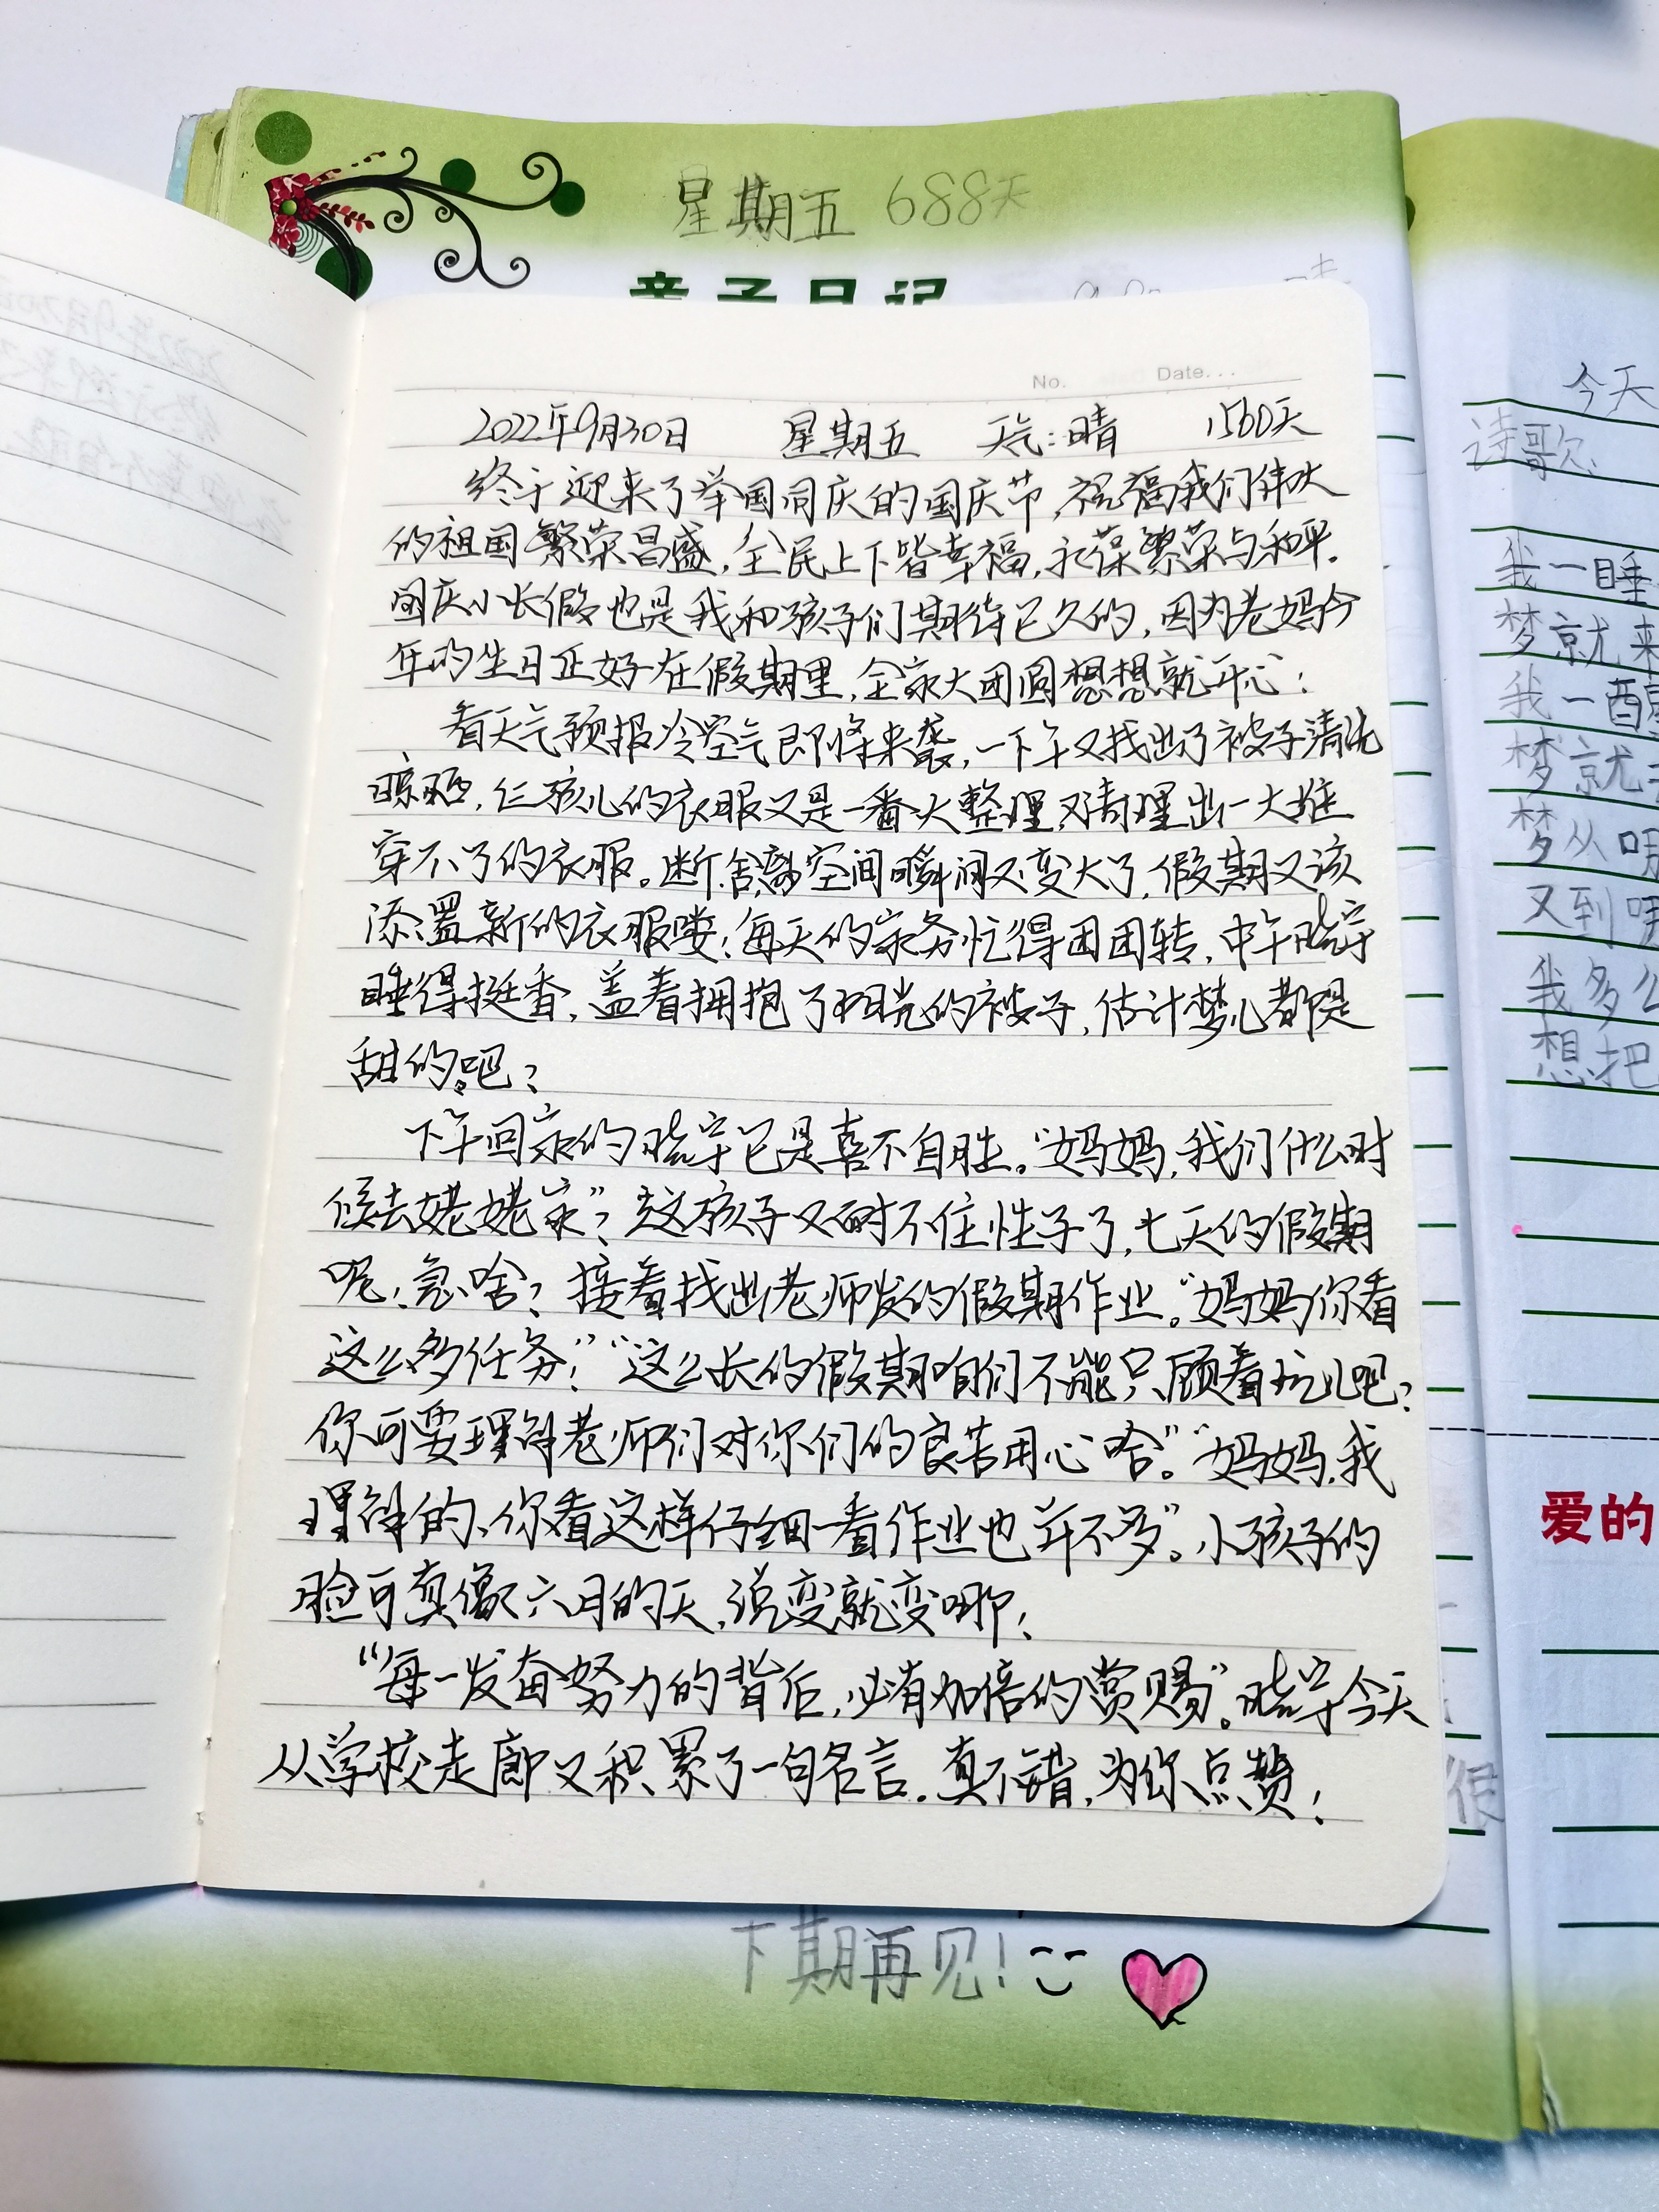 星期五 688天
亲子日记
No. Date...
2022年9月30日 星期五 天气:晴 1560天
终于迎来了举国同庆的国庆节,祝福我们伟大
的祖国繁荣昌盛,全民上下皆幸福,永葆繁荣与和平.
国庆小长假也是我和孩子们期待已久的,因为老妈今
年的生日正好在假期里,全家大团圆想想就开心!
看天气预报冷空气即将来袭,一下午又找出了被子清洗
晾晒,仨孩儿的衣服又是一番大整理,又清理出一大堆
穿不了的衣服。断舍离空间瞬间又变大了,假期又该
添置新的衣服喽!每天的家务忙得团团转,中午晓宇
睡得挺香,盖着拥抱了阳光的被子,估计梦儿都是
甜的吧?
下午回家的晓宇已是喜不自胜。“妈妈,我们什么时
候去姥姥家”?这孩子又耐不住性子了,七天的假期
呢!急啥?接着找出老师发的假期作业。“妈妈你看
这么多任务!”“这么长的假期咱们不能只顾着玩儿吧?
你可要理解老师们对你们的良苦用心哈”。“妈妈,我
理解的、你看这样仔细一看作业也并不多”。小孩子的
脸可真像六月的天,说变就变哪!
“每一发奋努力的背后,必有加倍的赏赐”。晓宇今天
从学校走廊又积累了一句名言.真不错,为你点赞!
下期再见!
今天
诗歌
我一睡
梦就来
我一醒
梦就
梦从哪
又到哪
我多么
想把
爱的
很